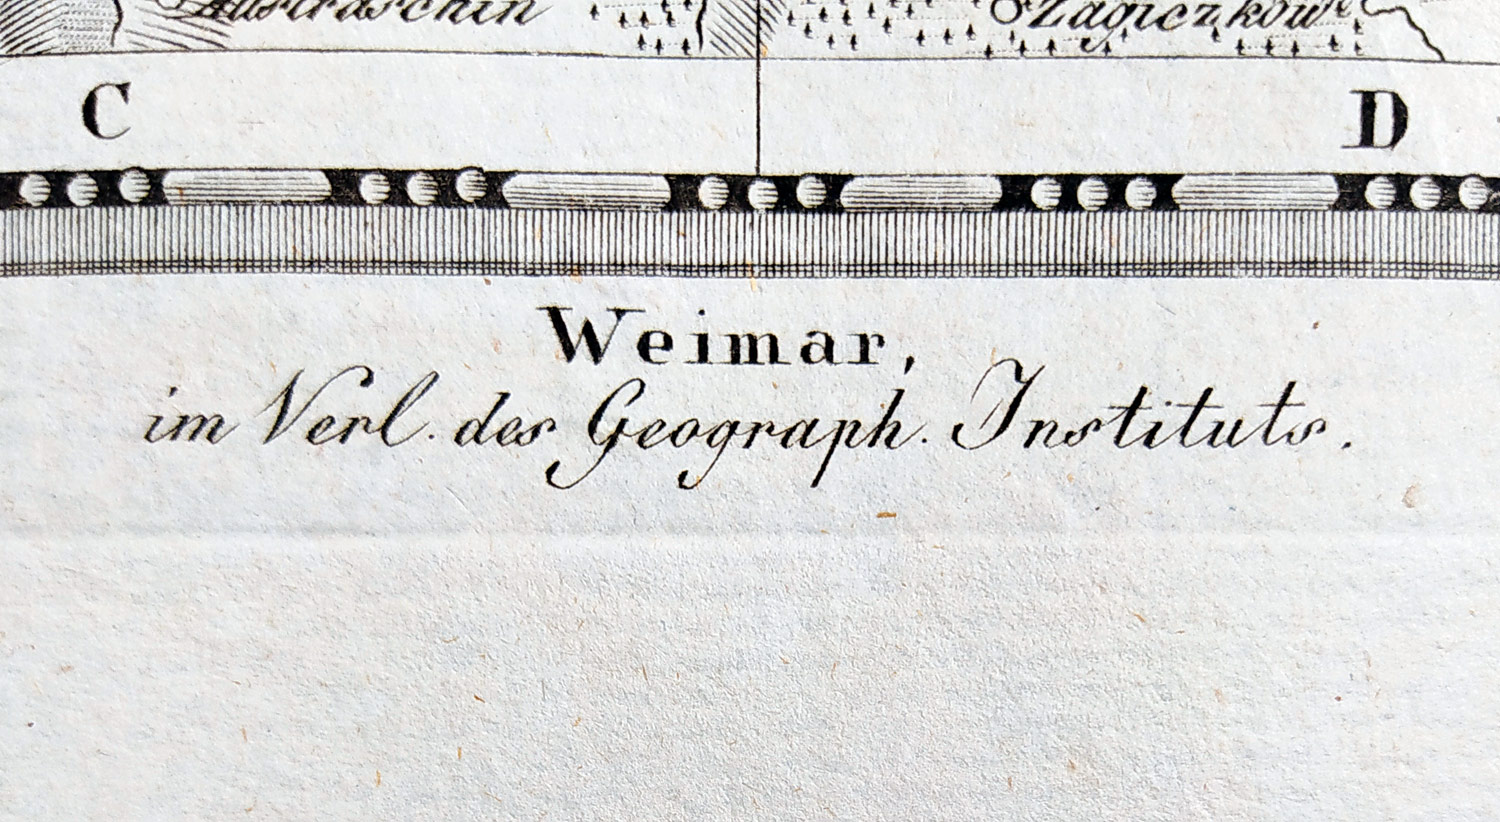 Zagiczkow
C D
Weimar,
im Verl. des Geograph. Instituts.